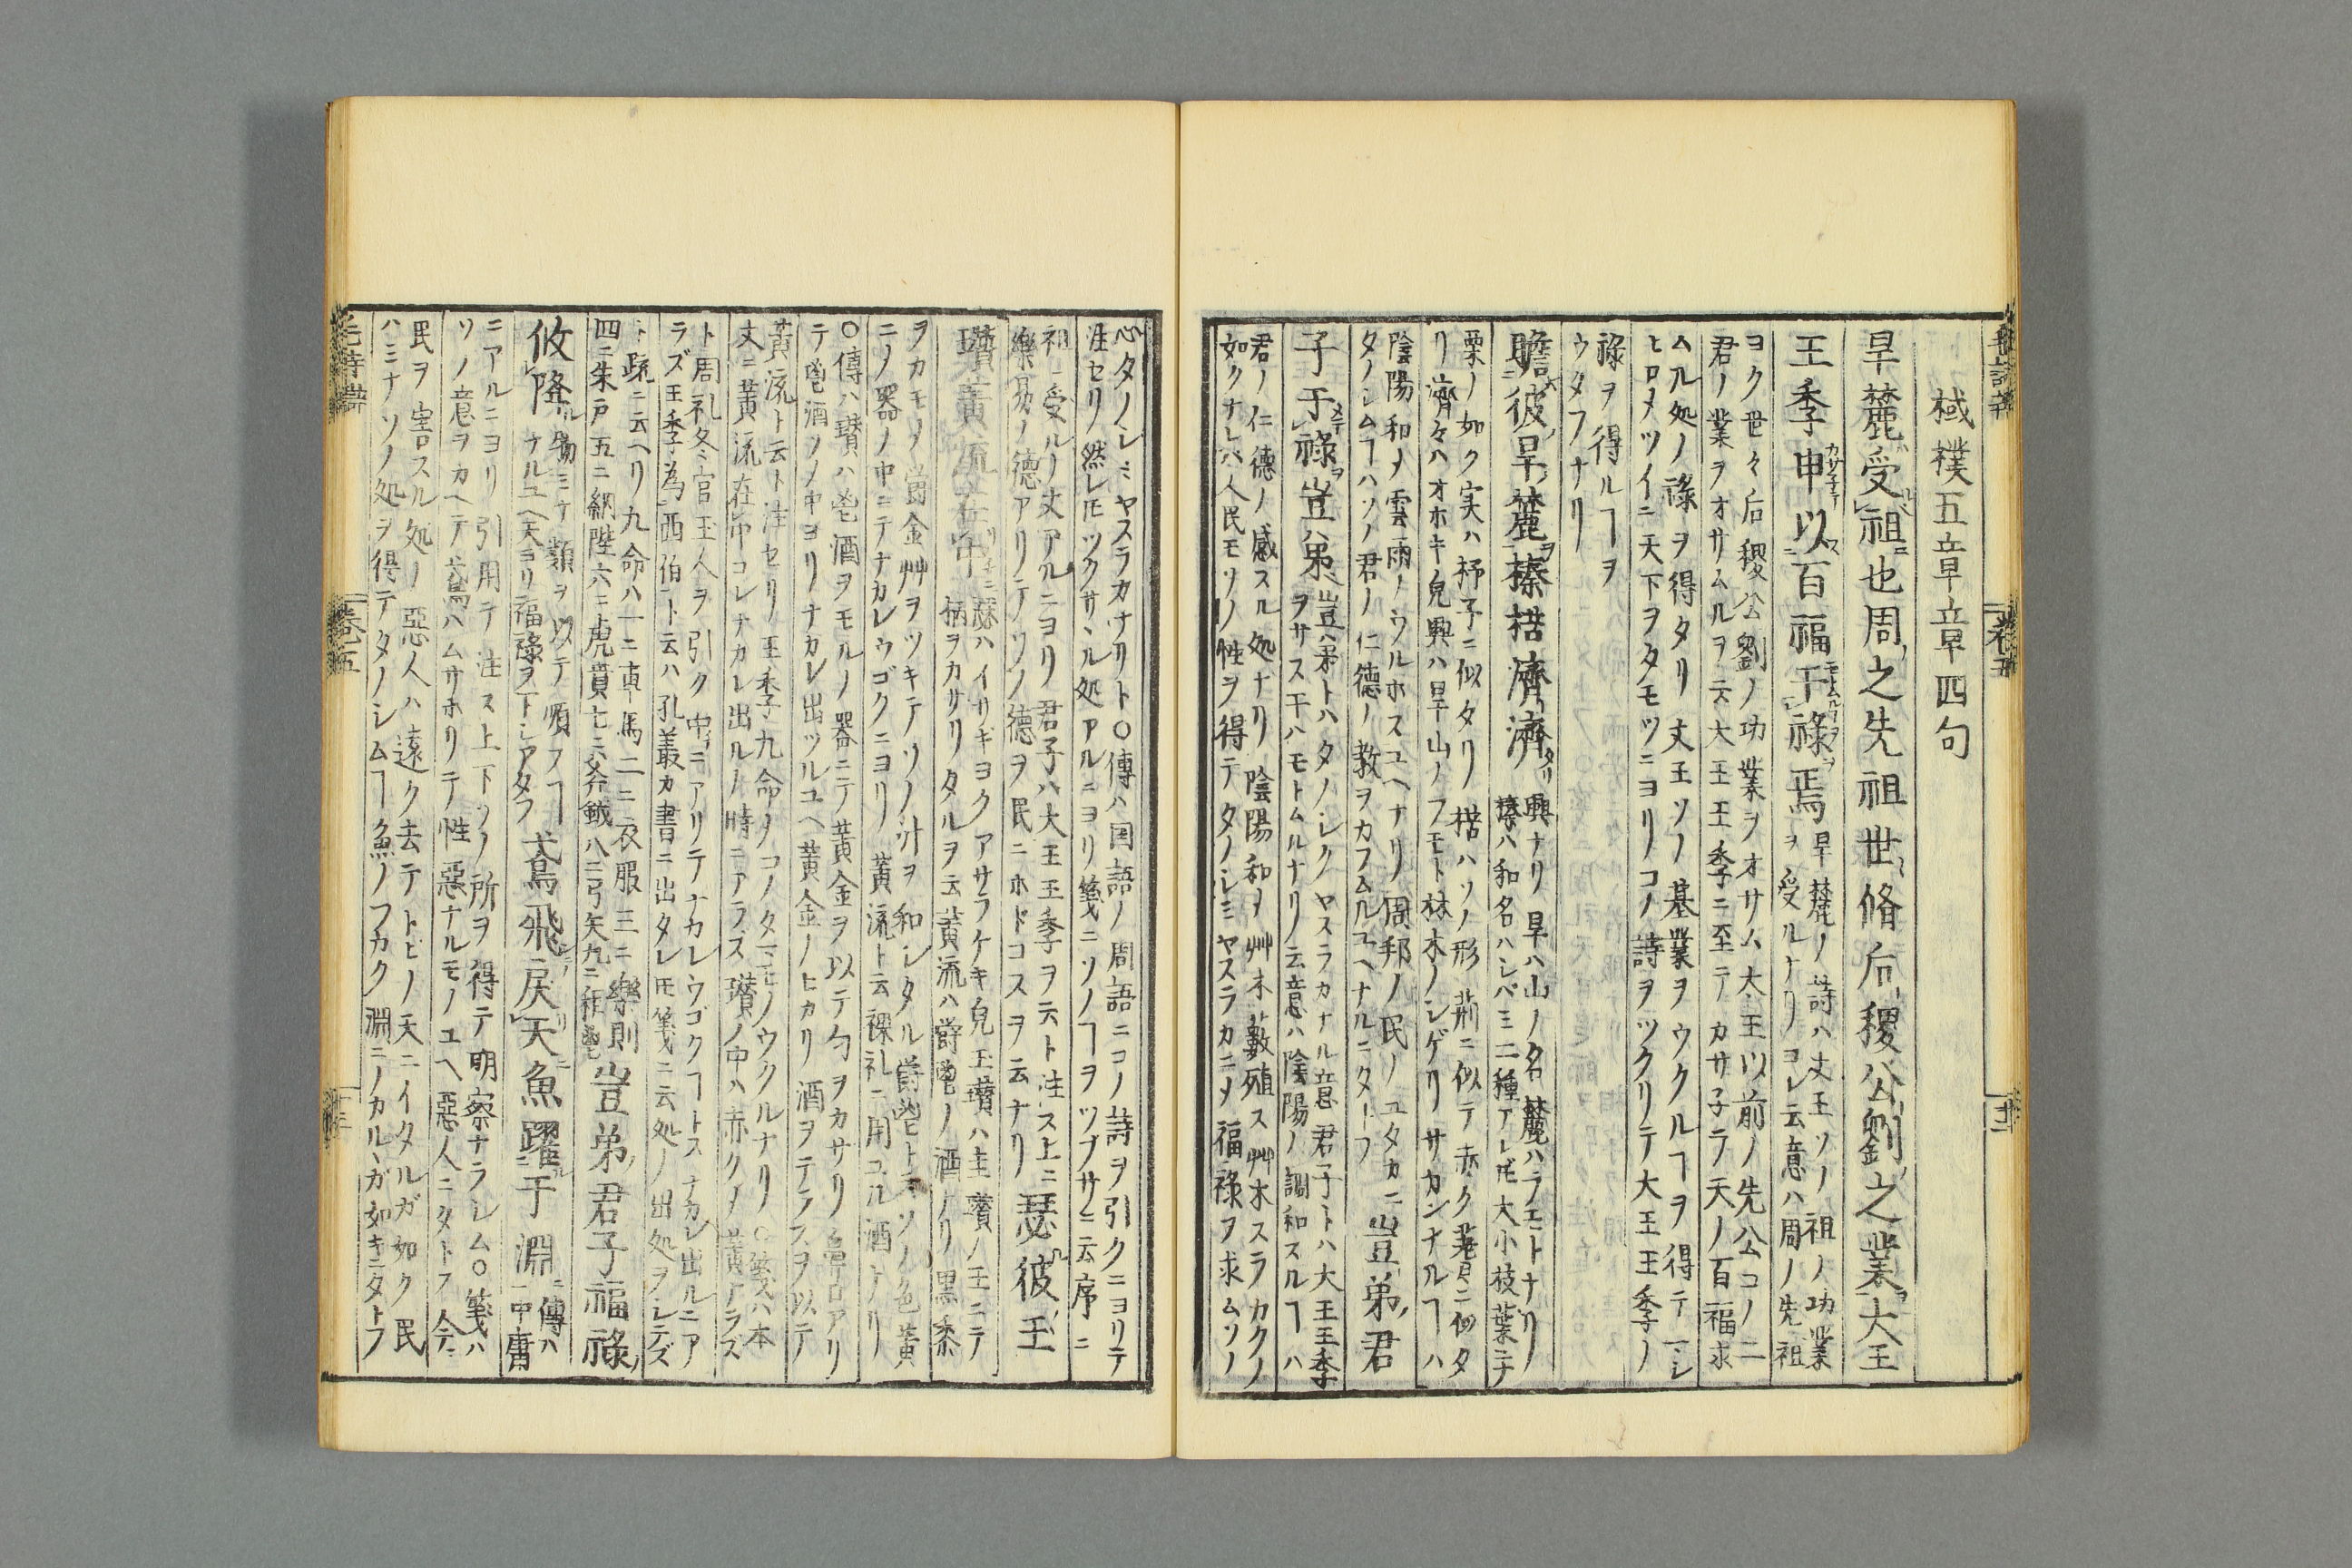 棫樸五章章四句
旱麓受祖也周之先祖世脩后稷公劉之業大王
王季申以百福干祿焉
旱麓ノ詩ハ文王ソノ祖ノ功業
ヲ受ルナリコレ云意ハ周ノ先祖
ヨク世々后稷公劉ノ功業ヲオサム大王以前ノ先公コノ二
君ノ業ヲオサムルヲ云大王王季ニ至テカサ子ラ天ノ百福求
ムル処ノ祿ヲ得タリ文王ソノ基業ヲウクルヿヲ得テ
ヒロメツイニ天下ヲタモツニヨリコノ詩ヲツクリテ大王王季ノ
祿ヲ得ルヿヲ
ウタフナリ
瞻彼旱麓榛楛濟濟
興ナリ旱ハ山ノ名麓ハフモトナリ
榛ハ和名ハシバミ二種アレ𪜈大小枝葉
栗ノ如ク実ハ杼子ニ似タリ楛ハソノ形荊ニ似テ赤ク蓍ニ似タ
リ濟々ハオホキ皃興ハ旱山ノフモト林木ノシゲリサカンナルヿハ
陰陽和メ雲雨ノウルホスユヘナリ周邦ノ民ノユタカニ
タノシムヿハソノ君ノ仁德ノ教ヲカフムルユヘナルニタトフ
豈弟君
子干祿豈弟
豈弟トハタノシクヤスラカナル意君子トハ大王王季
ヲサス干ハモトムルナリ云意ハ陰陽ノ調和スルヿハ
君ノ仁德ノ感スル処ナリ陰陽和メ艸木藪殖ス艸木スラカクノ
如クナレハ人民モソノ性ヲ得テタノシミヤスラカニメ福祿ヲ求ムソノ
心タノシミヤスラカナリト○傳ハ国語ノ周語ニコノ詩ヲ引クニヨリテ
注セリ然レ𪜈ツクサヽル処アルニヨリ箋ニソノヿヲツブサニ云序ニ
祖ヲ受ルノ文アルニヨリ君子ハ大王王季ヲ云ト注ス上ニ
樂易ノ德アリテソノ德ヲ民ニホドコスヲ云ナリ
瑟彼玉
瓚黃流在中
瑟ハイサギヨクアサラケキ皃玉瓚ハ圭瓚ノ玉ニテ
柄ヲカサリタルヲ云黃流ハ鬱鬯ノ酒ナリ黒黍
ヲカモメ鬱金艸ヲツキテソノ汁ヲ和シタル鬱鬯トテソノ色黃
ニメ器ノ中ニテナカレウゴクニヨリ黃流ト云祼礼ニ用ユル酒ナリ
○傳ハ瓚ハ鬯酒ヲモルノ器ニテ黃金ヲ以テ勺ヲカサリ鼻口アリ
テ鬯酒ソノ中ヨリナカレ出ツルユヘ黃金ノヒカリ酒ヲテラスヲ以テ
黃流ト云ト注セリ王季九命メコノタマモノヲウクルナリ○箋ハ本
文ニ黃流在中コレナカレ出ルノ時ニアラズ瓚ノ中ハ赤クメ黃ナラズ
ト周礼冬官玉人ヲ引ク中ニアリテナカレウゴクヿトスナカレ出ルニア
ラズ王季為西伯ト云ハ孔叢カ書ニ出タレ𪜈箋ニ云処ノ出処ヲシラズ
ト疏ニ云ヘリ九命ハ一ニ車馬二ニ衣服三ニ樂則
四ニ朱戸五ニ納陛六ニ虎賁七ニ斧鉞八ニ弓矢九ニ秬鬯
豈弟君子福祿
攸降
物ミナ類ヲ以テ順フヿ
ナルユヘ天ヨリ福祿ヲ下シアタフ
鳶飛戾天魚躍于淵
傳ハ
中庸
ニアルニヨリ引用テ注ス上下ソノ所ヲ得テ明察ナラシム○箋ハ
ソノ意ヲカヘテ鳶ハムサホリテ性惡ナルモノユヘ惡人ニタトフ今
民ヲ害スル処ノ惡人ハ遠ク去テトビノ天ニイタルガ如ク民
ハミナソノ処ヲ得テタノシムヿ魚ノフカク淵ニノカルヽガ如キニタトフ